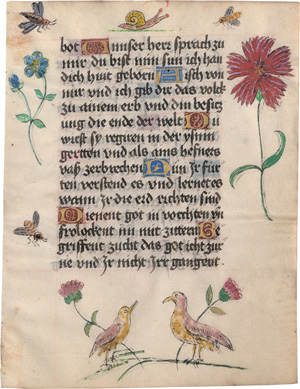 bot Ounser herz sprach zu
mir du bist min sun ich han
dich hiut geborn Aisch von
mir und ich gib dir das volck
zu ainem erb und din besitz
ung die ende der welt Du
wirst sy regiren in der ysnin
gertten und als ains hefners
vaß zerbrechen Nun Ir für
ten verstend es und lernet es
wann ir die erd richten sind
Dienent got in vorchten vn
frolockent im mit zittern Be
griffent zucht das got icht zur
ne und Ir nicht Irr gangent